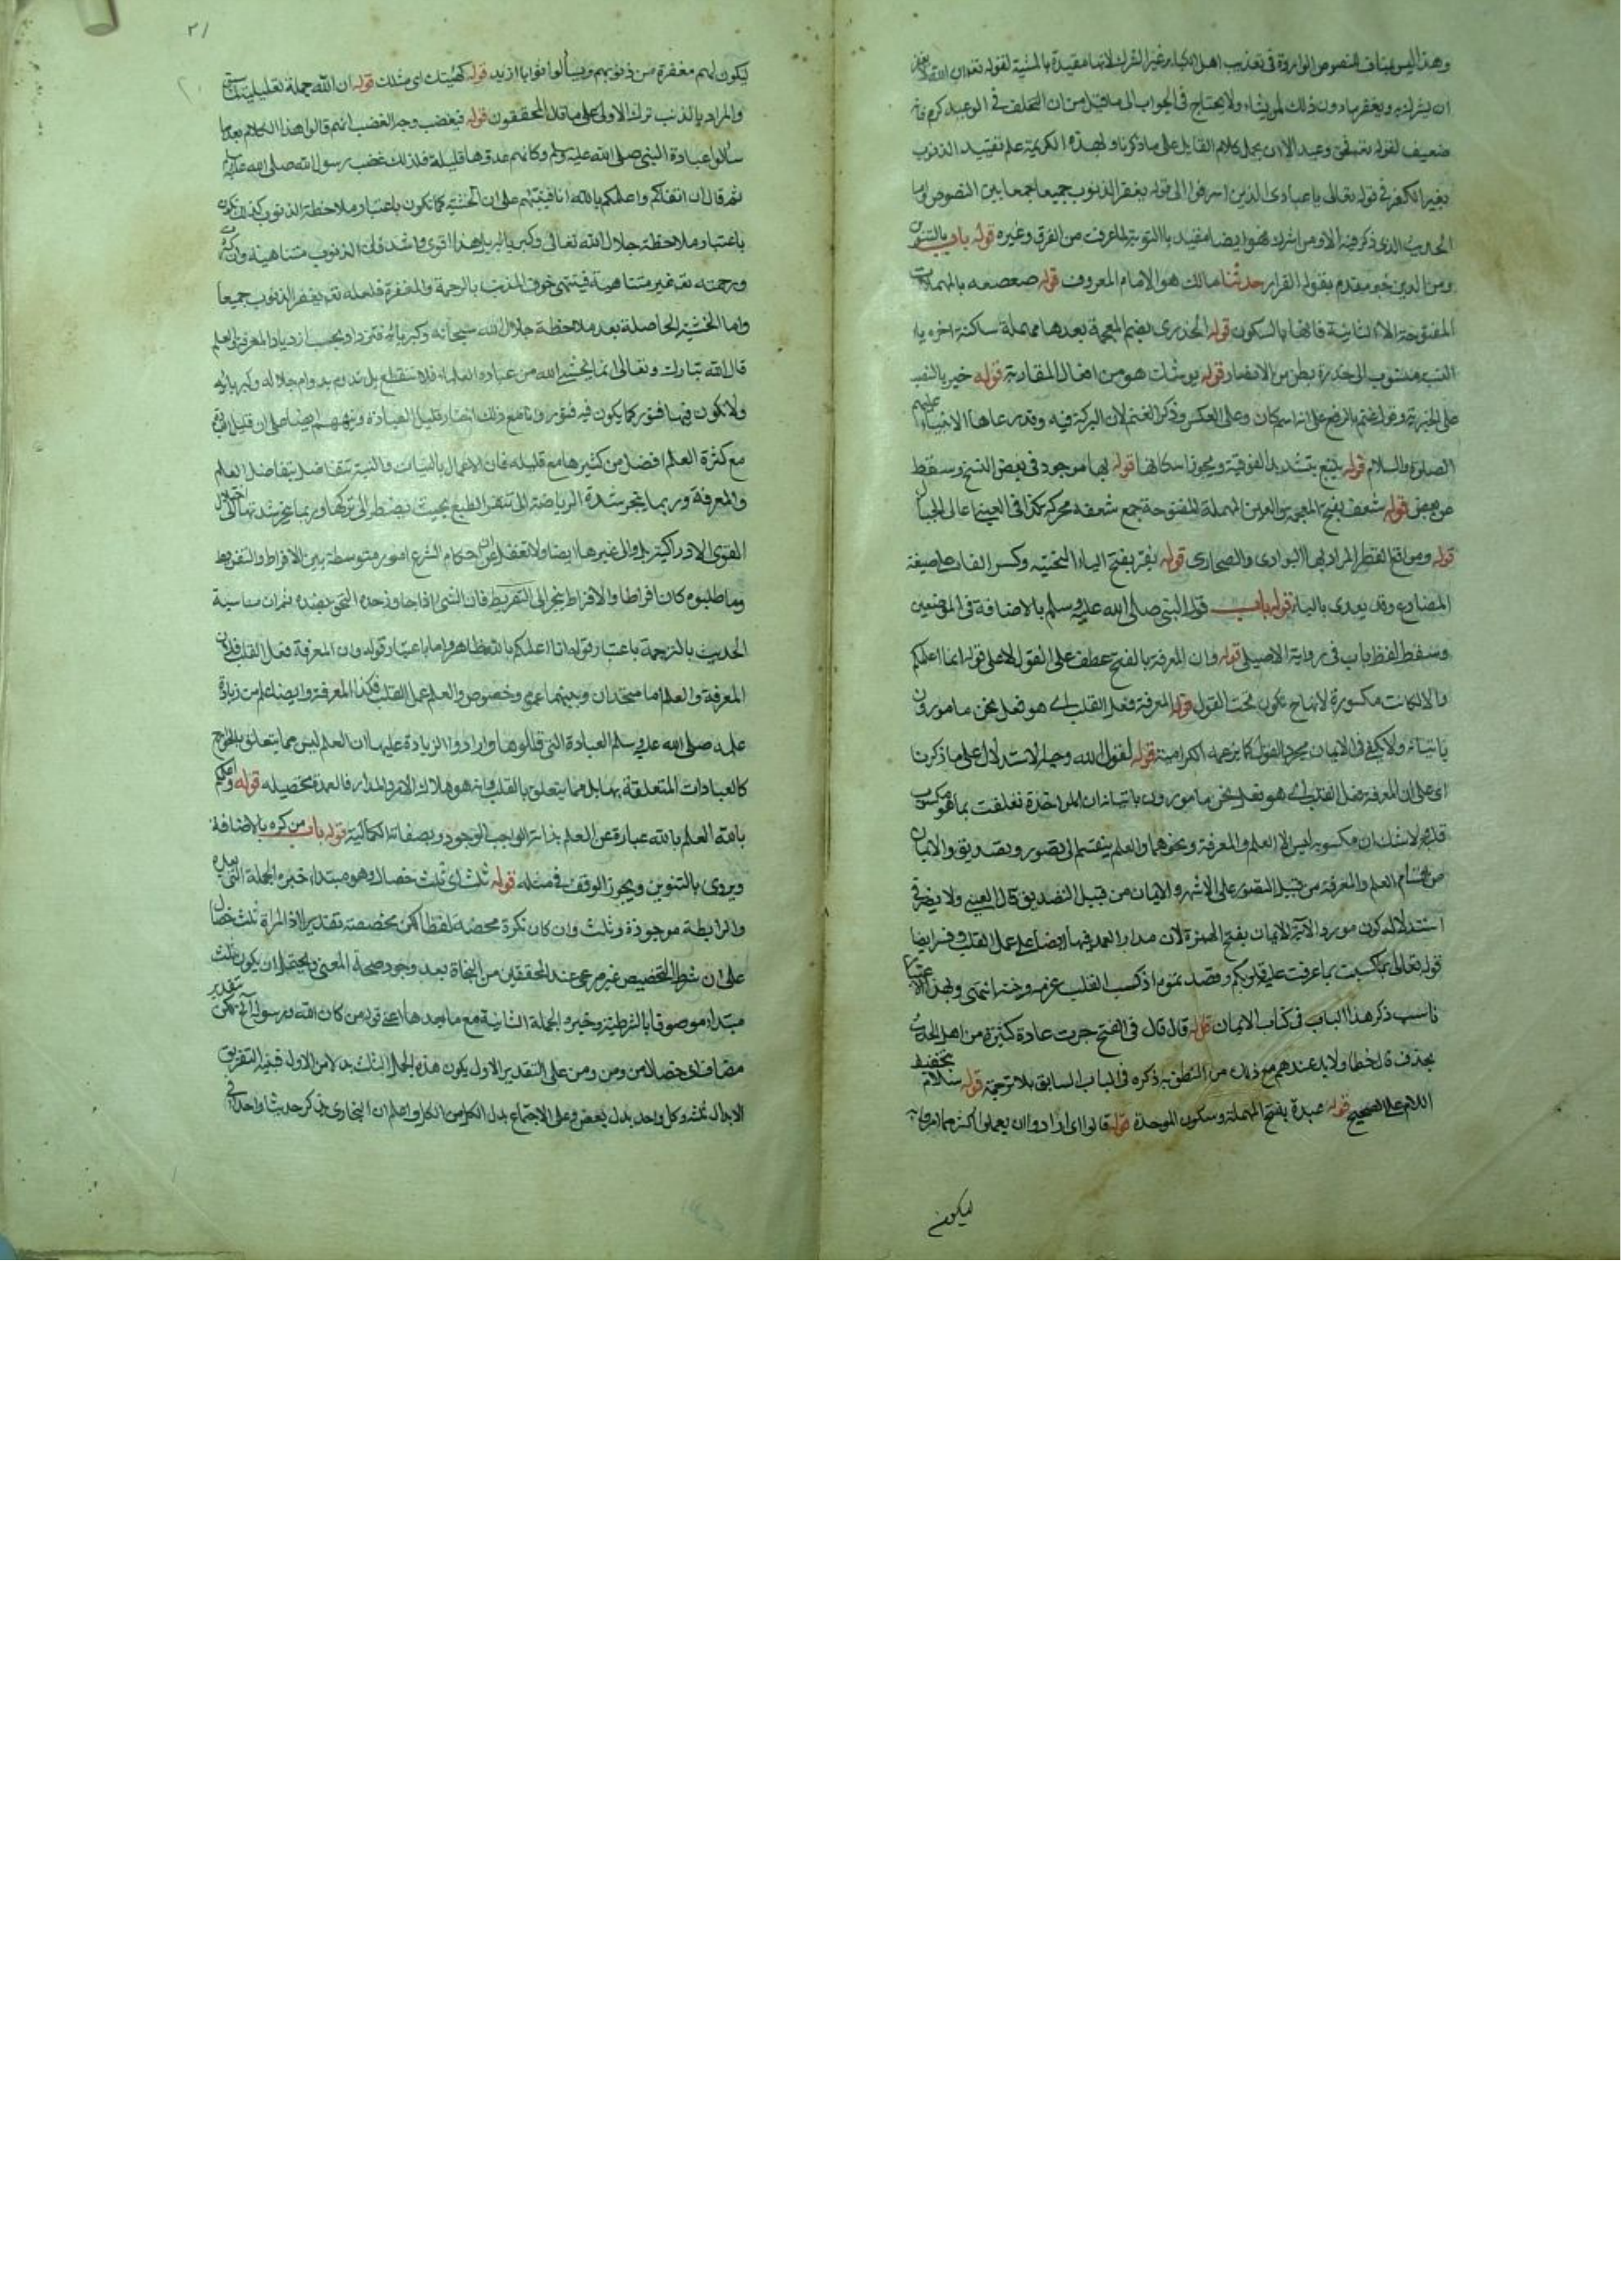 وهذا ليس ينافي النصوص الواردة في تعذيب اهل الكباير غير الشرك لانها مقيدة بالمشية لقوله تعالى ان الله لا يغفر
ان يشرك به ويغفر ما دون ذلك لمن يشاء ولا يحتاج في الجواب الى ما قيل من ان التخلف في الوعيد كرم فانه
ضعيف لقوله وعيد الا ان يحمل كلام القايل على ما ذكرنا ولهذه الكريمة علم تقييد الذنوب
بغير الكفر في قوله تعالى يا عبادي الذين اسرفوا الى قوله يغفر الذنوب جميعا جمعا بين النصوص واما
الحديث الذي ذكر فيه الا ومن اشرك فهو ايضا مقيد بالتوبة لما عرفت من الفرق وغيره قوله باب بالتنوين
ومن الدين خبر مقدم بقوله الفرار حدثنا مالك هو الامام المعروف قوله صعصعه بالمهملات
المفتوحة الا الثانية فانها بالسكون قوله الخدري بضم المعجمة بعدها مهملة ساكنة اخره ياء
النسب منسوب الى خدرة بطن من الانصار قوله يوشك هو من افعال المقاربة قوله خير بالنصب
على الخبرية وقوله غنم بالرفع على انه اسم كان وعلى العكس وذكر الغنم لان البركة فيه وقد رعاها الانبياء عليهم
الصلوة والسلام قوله يتبع بتشديد الفوقية ويجوز اسكانها قوله بها موجود في بعض النسخ وسقط
عن بعض قوله شعف بفتح المعجمة والعين المهملة المفتوحة جمع شعفه محركة كذا في العيني اعالى الجبال
قوله ومواقع القطر المراد بها البوادى والصحارى قوله يفر بفتح الياء التحتية وكسر الفاء على صيغة
المضارع وقد يعدى بالباء قوله باب قول النبي صلى الله عليه وسلم بالاضافة في الموضعين
وسقط لفظ باب في رواية الاصيلى قوله وان المعرفة بالفتح عطف على القول لا على قوله انا اعلمكم
والا لكانت مكسورة لانها ح تكون تحت القول قوله المعرفة فعل القلب اى هو فعل نحن مامورون
باتيانه ولا يكفى في الايمان مجرد القول كما يزعمه الكرامية قوله لقول الله وجه الاستدلال على ما ذكرنا
اى على ان المعرفة فعل القلب اى هو فعل نحن مامورون باتيانه ان المواخذة تعلقت بما هو مكسوب
قلب ولا شك ان مكسوبه ليس الا العلم والمعرفة ونحوهما والعلم ينقسم الى تصور وتصديق والايمان
من اقسام العلم والمعرفة من قبيل التصور على الاشهر والايمان من قبيل التصديق قال العيني ولا يضر في
استدلاله كون مورد الآية الايمان بفتح الهمزة لان مدار العمد فيها ايضا على عمل القلب وفسر ايضا
قوله تعالى بما كسبت بما عرفت عليه قلوبكم وقصدتموه اذ كسب القلب عزمه ونيته انتهى وبهذا الاعتبار
ناسب ذكر هذا الباب في كتاب الايمان قوله قال قال في الفتح جرت عادة كثيرة من اهل الحديث
بحذف قال خطا ولا بد عندهم مع ذلك من النطق به ذكره في الباب السابق بلا ترجمة قوله سلام بتخفيف
اللام على الصحيح قوله عبدة بفتح المهملة وسكون الموحدة قوله قالوا اى ارادوا ان يعملوا اكثر مما امروا به
ليكون
٢١
ليكون لهم مغفرة من ذنوبهم وينالوا ثوابا ازيد قوله كهيئتك اى مثلك قوله ان الله جملة تعليلية
والمراد بالذنب ترك الاولى على ما قاله المحققون قوله فيغضب وجه الغضب انهم قالوا هذا الكلام بعد ما
سالوا عبادة النبي صلى الله عليه وسلم وكانهم عدوها قليلة فلذلك غضب رسول الله صلى الله عليه وسلم
ثم قال ان اتقاكم واعلمكم بالله انا فنبههم على ان الخشية كما تكون باعتبار ملاحظة الذنوب كذلك تكون
باعتبار ملاحظة جلال الله تعالى وكبريائه بل هذا اقوى واشد فان الذنوب متناهية وان كثرت
ورحمته تعالى غير متناهية فينتهى خوف المذنب بالرحمة والمغفرة فلعله تعالى يغفر الذنوب جميعا
واما الخشية الحاصلة بعد ملاحظة جلال الله سبحانه وكبريائه فتزداد بحسب ازدياد المعرفة والعلم
قال الله تبارك وتعالى انما يخشى الله من عباده العلماء فلا تنقطع بل تدوم بدوام جلاله وكبريائه
ولا تكون فيها فتور كما يكون فيه فتور وانه مع ذلك اختار قليل العبادة ونبههم ايضا على ان قليل العبادة
مع كثرة العلم افضل من كثيرها مع قليله فان الاعمال بالنيات والنية تتفاضل بتفاضل العلم
والمعرفة وربما ينجر شدة الرياضة الى تنفر الطبع بحيث يضطر الى تركها وربما ينجر شدتها الى اختلال
القوى الادراكية بل والى غيرها ايضا ولا تغفل عن ان احكام الشرع امور متوسطة بين الافراط والتفريط
وما طلبوه كان افراطا والافراط ينجر الى التفريط فان الشئ اذا جاوز حده التحق بضده ثم ان مناسبة
الحديث بالترجمة باعتبار قوله انا اعلمكم بالله ظاهر واما باعتبار قوله وان المعرفة فعل القلب فلان
المعرفة والعلم اما متحدان وبينهما عموم وخصوص والعلم عمل القلب فكذا المعرفة وايضا علم من زيادة
علمه صلى الله عليه وسلم العبادة التى قالوها وارادوا الزيادة عليها ان العلم ليس مما يتعلق بالجوارح
كالعبادات المتعلقة بها بل مما يتعلق بالقلب وانه هو ملاك الامر والمدار فالعمدة تحصيله قوله واعلمكم
بالله العلم بالله عبارة عن العلم بذاته الواجب الوجود وبصفاته الكمالية قوله باب من كره بالاضافة
ويروى بالتنوين ويجوز الوقف في مثله قوله ثلث اى ثلث خصال وهو مبتداء خبره الجملة التى بعده
والرابطة موجودة وثلث وان كان نكرة محضة لفظا لكن مخصصة بتقدير اذ المراد ثلث خصال
على ان شرط التخصيص غير مرعى عند المحققين من النحاة بعد وجود صحة المعنى ويحتمل ان يكون ثلث
مبتداء موصوفا بالشرطية وخبره الجملة الثانية مع ما بعدها اعنى قوله من كان الله ورسوله الخ لكن بتقدير
مضاف اى خصلة من ومن ومن على التقدير الاول يكون هذه الجمل الثلث بدلا من الاول فبنية التفريق
الابدال ثلثه وكل واحد بدل بعض وعلى الاجتماع بدل الكل من الكل واعلم ان البخارى يذكر حديثا واحدا في